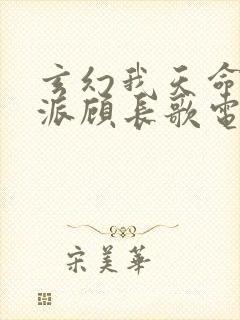 玄幻我天命
派顾长歌电
宋美華